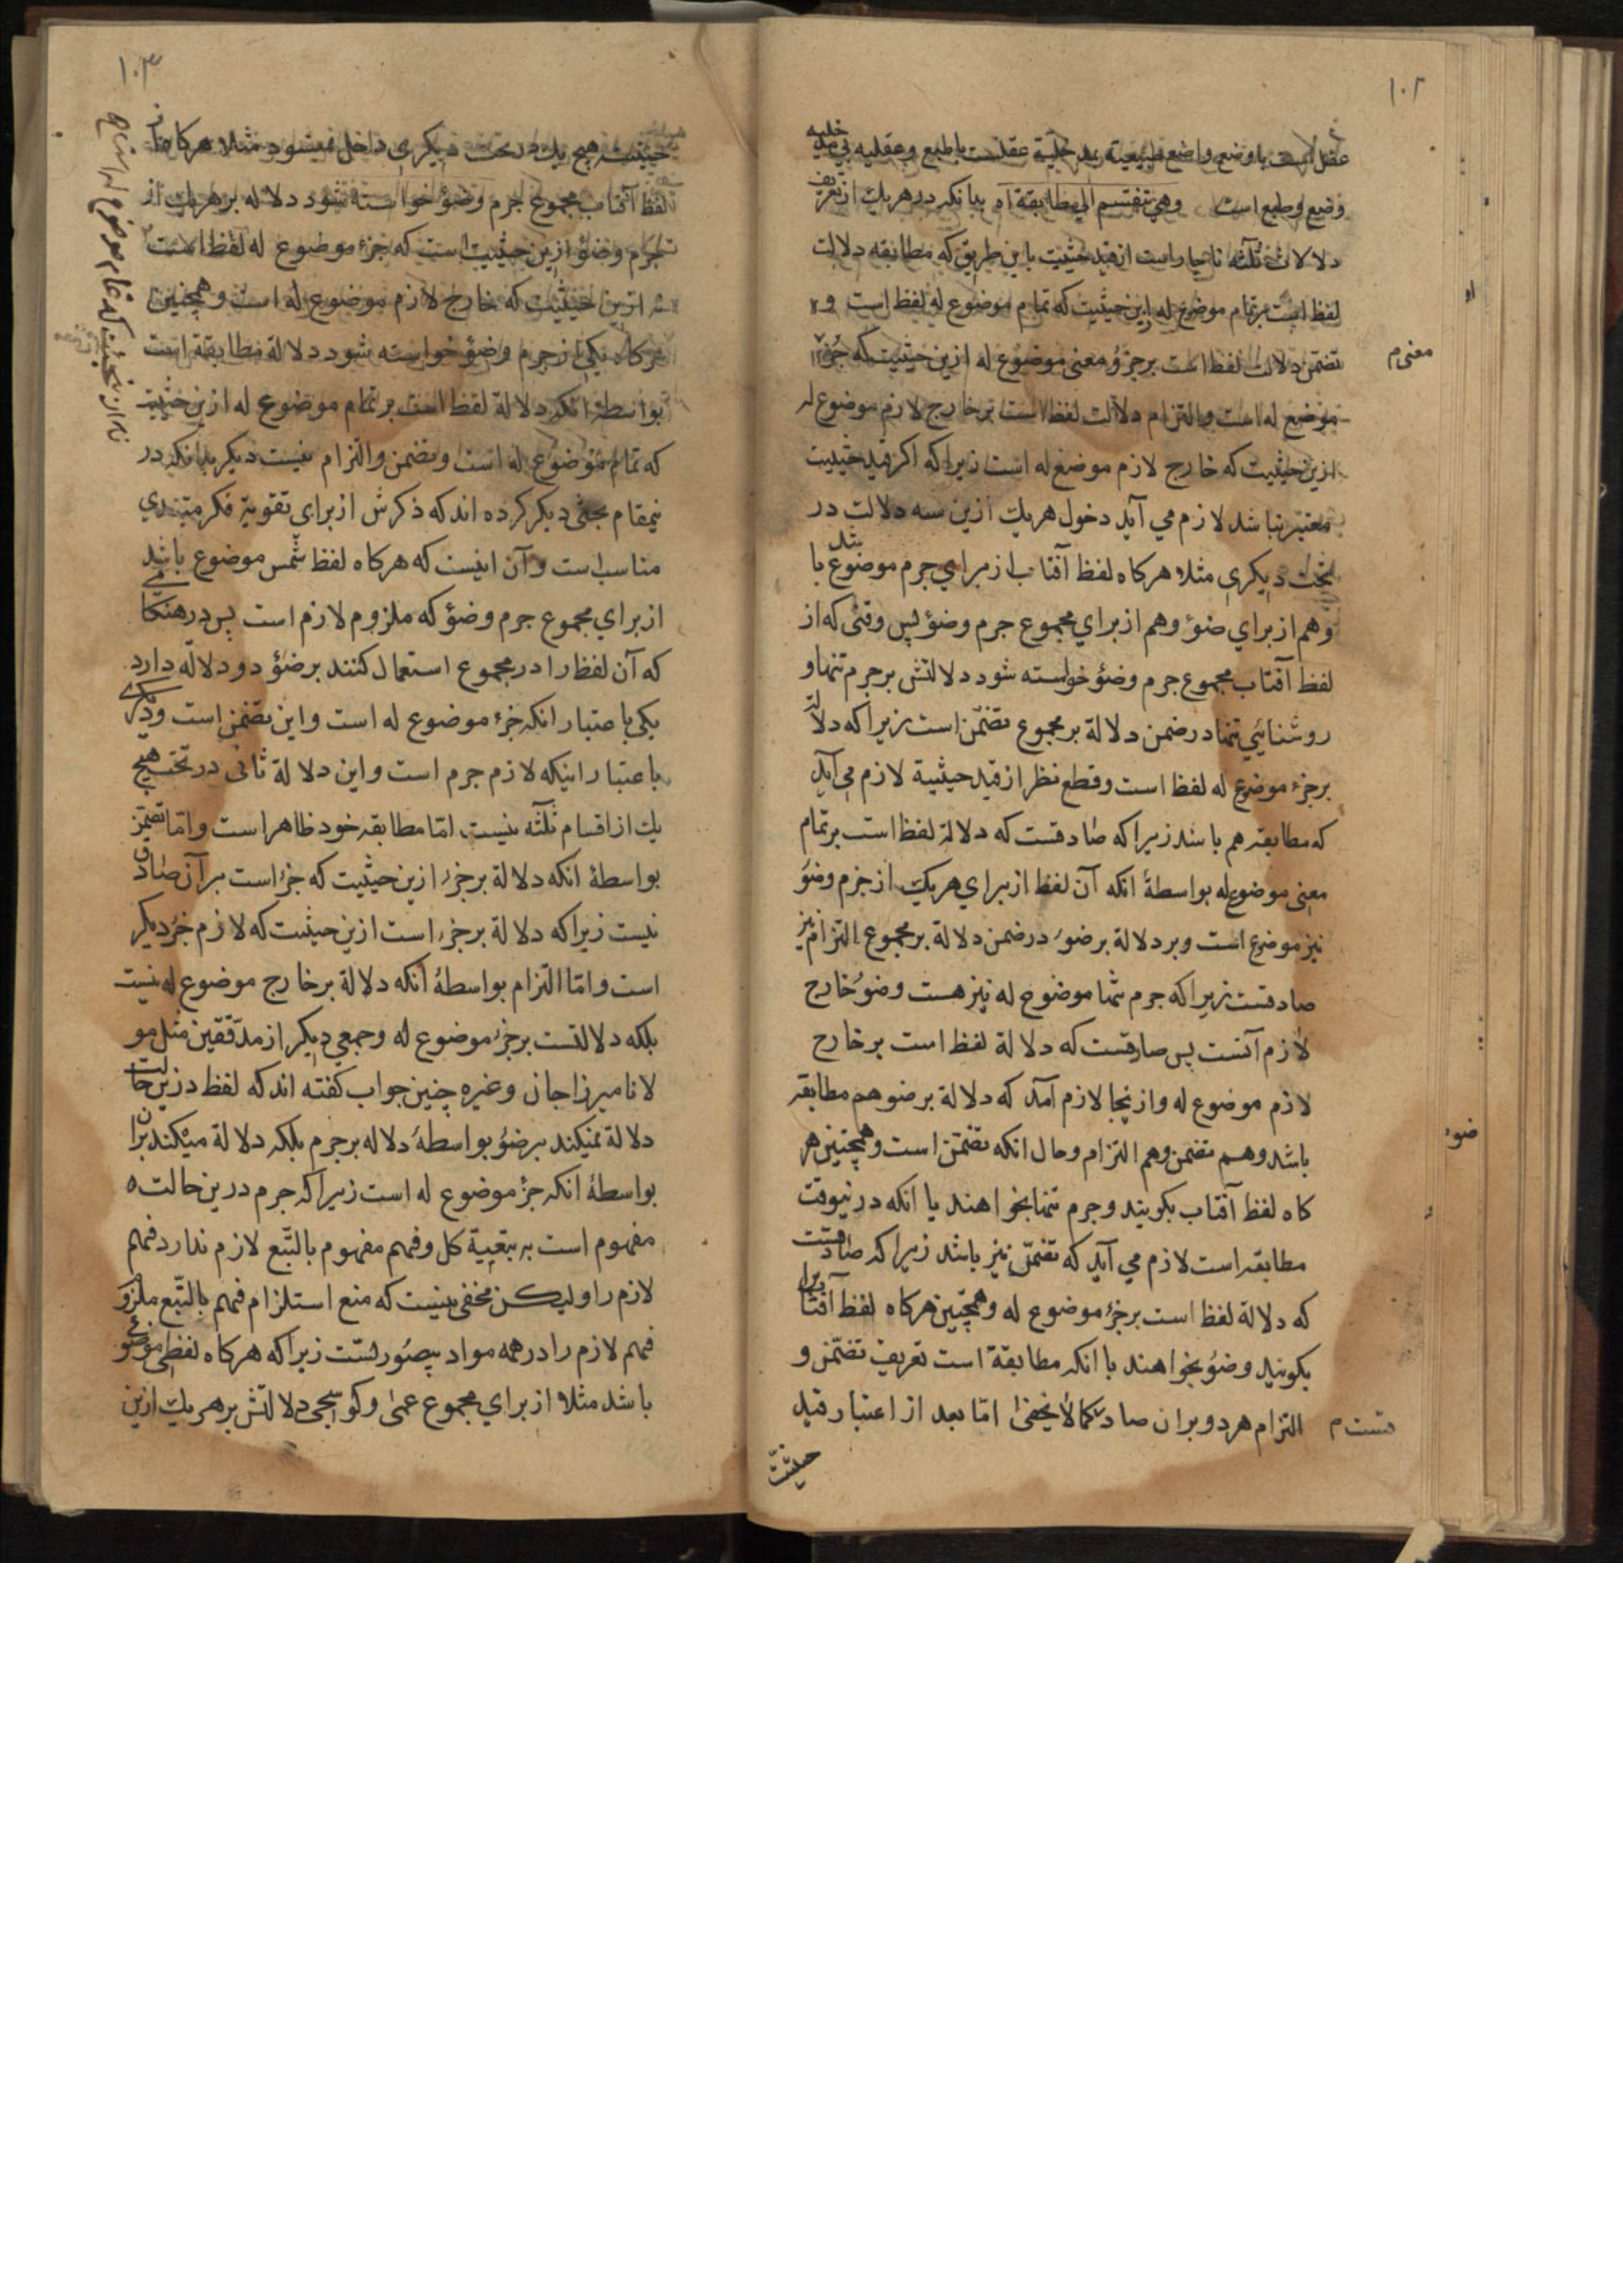 ١٠٢
عقل است با وضع واضع طبيعية بمدخلية عقلست با طبع وعقليه بي مدخليه
وضع وطبع است وهي تنقسم الي مطابقة اه بدانكه در هريك از تعريف
دلالات ثلثه ناچار است از قيد حيثيت باين طريق كه مطابقه دلالت
لفظ است برتمام موضوع له ازين حيثيت كه تمام موضوع له لفظ است و
تضمن دلالت لفظ است برجزؤ معنى موضوع له ازين حيثيت كه جزؤ
معنى م
موضع له است والتزام دلالت لفظ است بر خارج لازم موضوع له
ازين حيثيت كه خارج لازم موضع له است زيرا كه اكر قيد حيثيت
معتبر نباشد لازم مي آيد دخول هريك ازين سه دلالت در
تحت ديكري مثلا هركاه لفظ آفتاب از براي جرم موضوع باشد
وهم از براي ضؤ وهم از براي مجموع جرم وضؤ پس وقتى كه از
لفظ آفتاب مجموع جرم وضؤ خواسته شود دلالتش برجرم تنها و
روشنائي تنها در ضمن دلالة بر مجموع تضمن است زيرا كه دلالة
برجزء موضوع له لفظ است وقطع نظر از قيد حيثية لازم مي آيد
كه مطابقه هم باشد زيرا كه صادقست كه دلالة لفظ است برتمام
معنى موضوع له بواسطهٔ انكه آن لفظ از براي هريك از جزم وضؤ
نيز موضوع است وبر دلالة بر ضوء در ضمن دلالة بر مجموع التزام نيز
صادقست زيرا كه جرم تنها موضوح له نيز هست وضؤ خارج
لازم آنست پس صادقست كه دلالة لفظ است بر خارج
لازم موضوع له وازينجا لازم آمد كه دلالة برضو هم مطابقه
باشد وهم تضمن وهم التزام وحال انكه تضمن است وهمچنين هر
ضوء
كاه لفظ آفتاب بكويند وجرم تنها بخواهند با انكه درنيوقت
مطابقه است لازم مي آيد كه تضمن نيز باشد زيرا كه صادقست
كه دلالة لفظ است برجزؤ موضوع له وهمچنين هركاه لفظ آفتاب را
بكويند وضؤ بخواهند با انكه مطابقة است تعريف تضمن و
التزام هر دو بران صاد كما لا يخفى اما بعد از اعتبار قيد
قست م
حيثيت
١٠٣
حيثيت هيچ يك در تحت ديكرى داخل نميشود مثلا هركاه از
لفظ آفتاب مجموع جرم وضؤ خواسته شود دلاله بر هريك از
جرم وضؤ ازين حيثيت است كه جزء موضوع له لفظ است
نه ازين حيثيت كه خارج لازم موضوع له است وهمچنين
هركاه يكى از جرم وضؤ خواسته شود دلالة مطابقة است
بواسطهٔ انكه دلالة لفظ است بر تمام موضوع له ازين حيثيت
كه تمام موضوع له است وتضمن والتزام نيست ديكر بدانكه در
نيمقام بحثى ديكر كرده اند كه ذكرش از براي تقوية فكر مبتدي
مناسب است وآن اينست كه هركاه لفظ شمس موضوع باشد
از براي مجموع جرم وضؤ كه ملزوم لازم است پس در هنكامى
كه آن لفظ را در مجموع استعمال كنند برضؤ دو دلالة دارد
يكى باعتبار انكه جزء موضوع له است واين تضمن است وديكرى
باعتبار اينكه لازم جرم است واين دلالة ثانى در تحت هيچ
يك از اقسام ثلثه نيست اما مطابقه خود ظاهر است واما تضمن
بواسطهٔ انكه دلالة برجزء ازين حيثيت كه جزء است بر آن صادق
نيست زيرا كه دلالة برجزء است ازين حيثيت كه لازم جزء ديكر
است واما التزام بواسطهٔ انكه دلالة برخارج موضوع له نيست
بلكه دلالتست برجزء موضوع له وجمعي ديكر از مدققين مثل مو
لانا ميرزا جان وغيره چنين جواب كفته اند كه لفظ درين حالت
دلالة نميكند برضؤ بواسطهٔ دلاله برجرم بلكه دلالة ميكند بران
بواسطهٔ انكه جزؤ موضوع له است زيرا كه جرم درين حالت
مفهوم است به تبعية كل وفهم مفهوم بالتبع لازم ندارد فهم
لازم را وليكن مخفى نيست كه منع استلزام فهم بالتبع ملزوم
فهم لازم را در همه مواد بيصورتست زيرا كه هركاه لفظى موضوع
باشد مثلا از براي مجموع عمى وكوسجى دلالتش بر هريك ازين